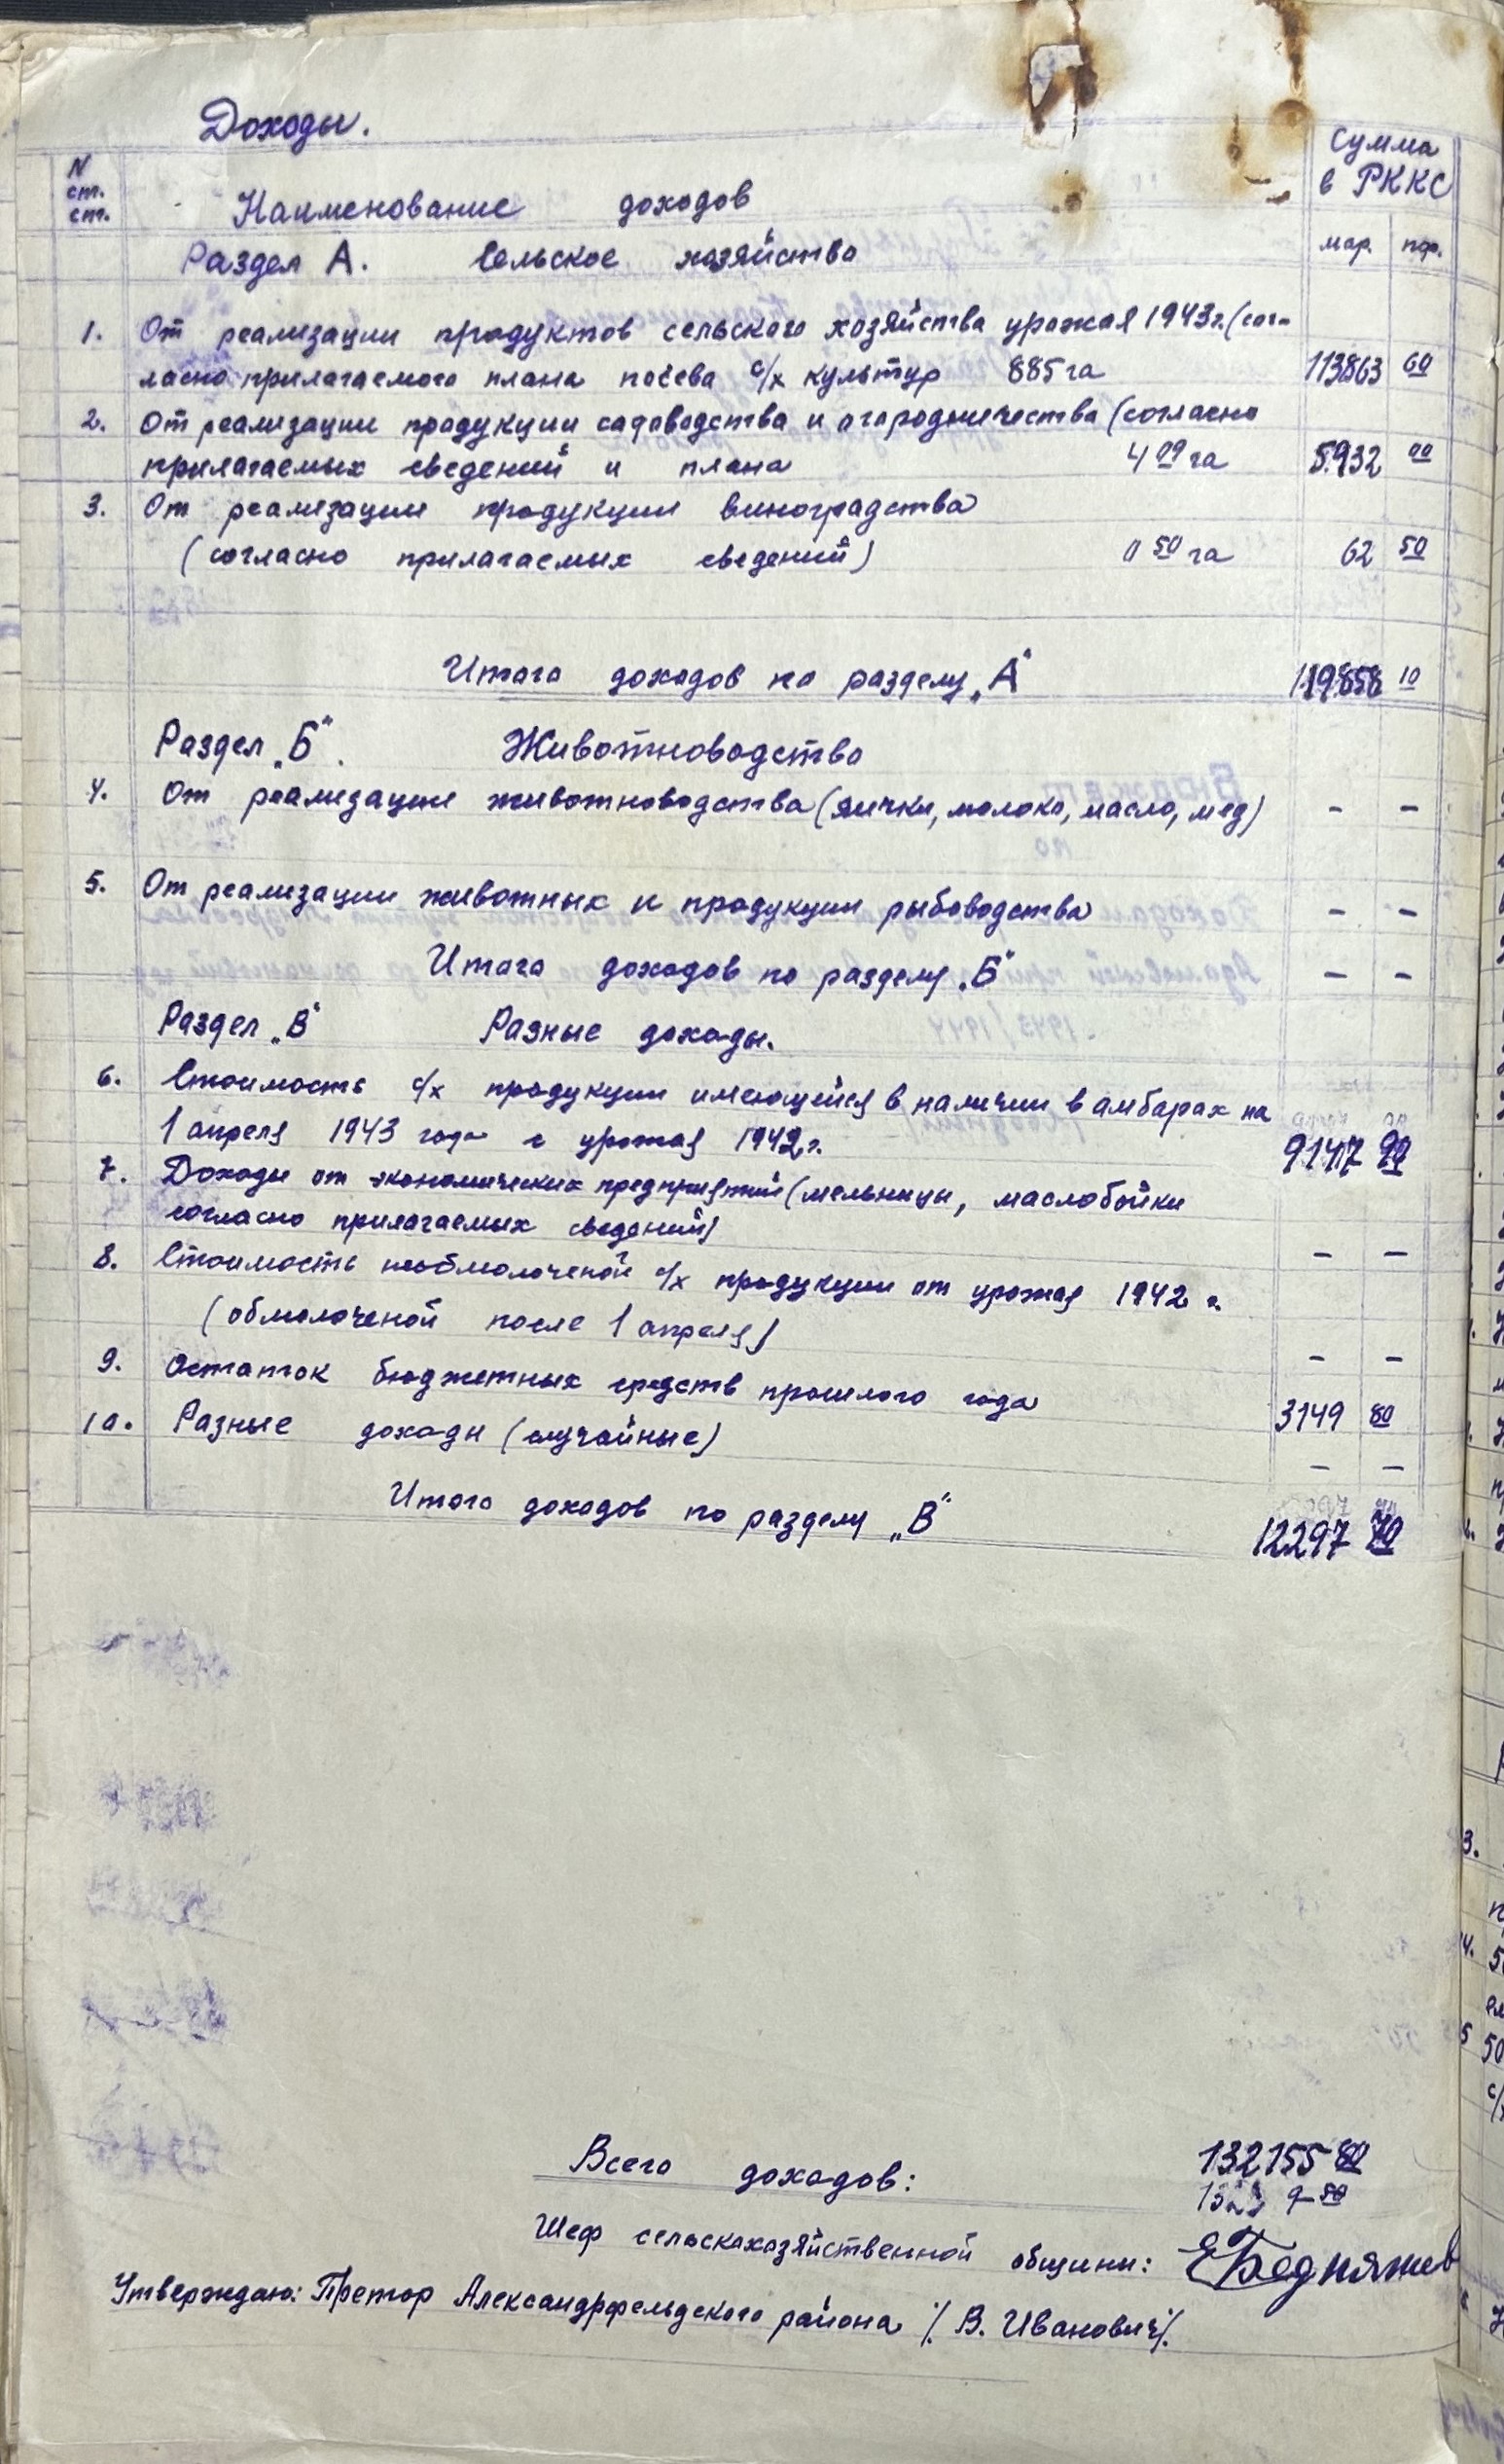 Доходы.
N ст. ст.
Наименование доходов
Сумма в РККС
мар. пф.
Раздел А. Сельское хозяйство
1. От реализации продуктов сельского хозяйства урожая 1943 г. (сог-
ласно прилагаемого плана посева с/х культур 885 га 113863 60
2. От реализации продукции садоводства и огородничества (согласно
прилагаемых сведений и плана 4 09 га 5932 00
3. От реализации продукции виноградства
(согласно прилагаемых сведений) 0 50 га 62 50
Итого доходов по разделу „А" 119858 10
Раздел „Б". Животноводство
4. От реализации животноводства (яички, молоко, масло, мед) – –
5. От реализации животных и продукции рыбоводства – –
Итого доходов по разделу „Б" – –
Раздел „В" Разные доходы.
6. Стоимость с/х продукции имеющейся в наличии в амбарах на
1 апреля 1943 года с урожая 1942 г. 9147 90
7. Доходы от экономических предприятий (мельницы, маслобойки
согласно прилагаемых сведений) – –
8. Стоимость необмолоченой с/х продукции от урожая 1942 г.
(обмолоченой после 1 апреля) – –
9. Остаток бюджетных средств прошлого года 3149 80
10. Разные доходи (случайные) – –
Итого доходов по разделу „В" 12297 70
Всего доходов: 132155 80
Шеф сельскохозяйственной общины: Е Бедняжев
Утверждаю: Претор Александрфельдского района /. В. Иванович/.